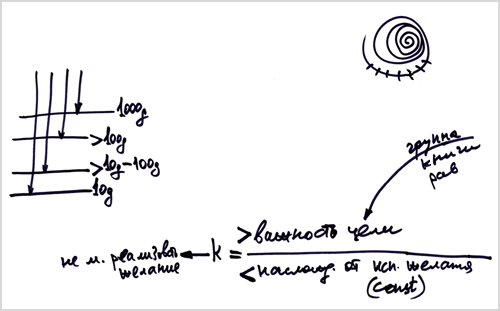 1000g
>100g
>10g-100g
10g
группа
книги
рав
не м. реализовать
желание
k = >важность цели
<наслажд. от исп. желания
(const)